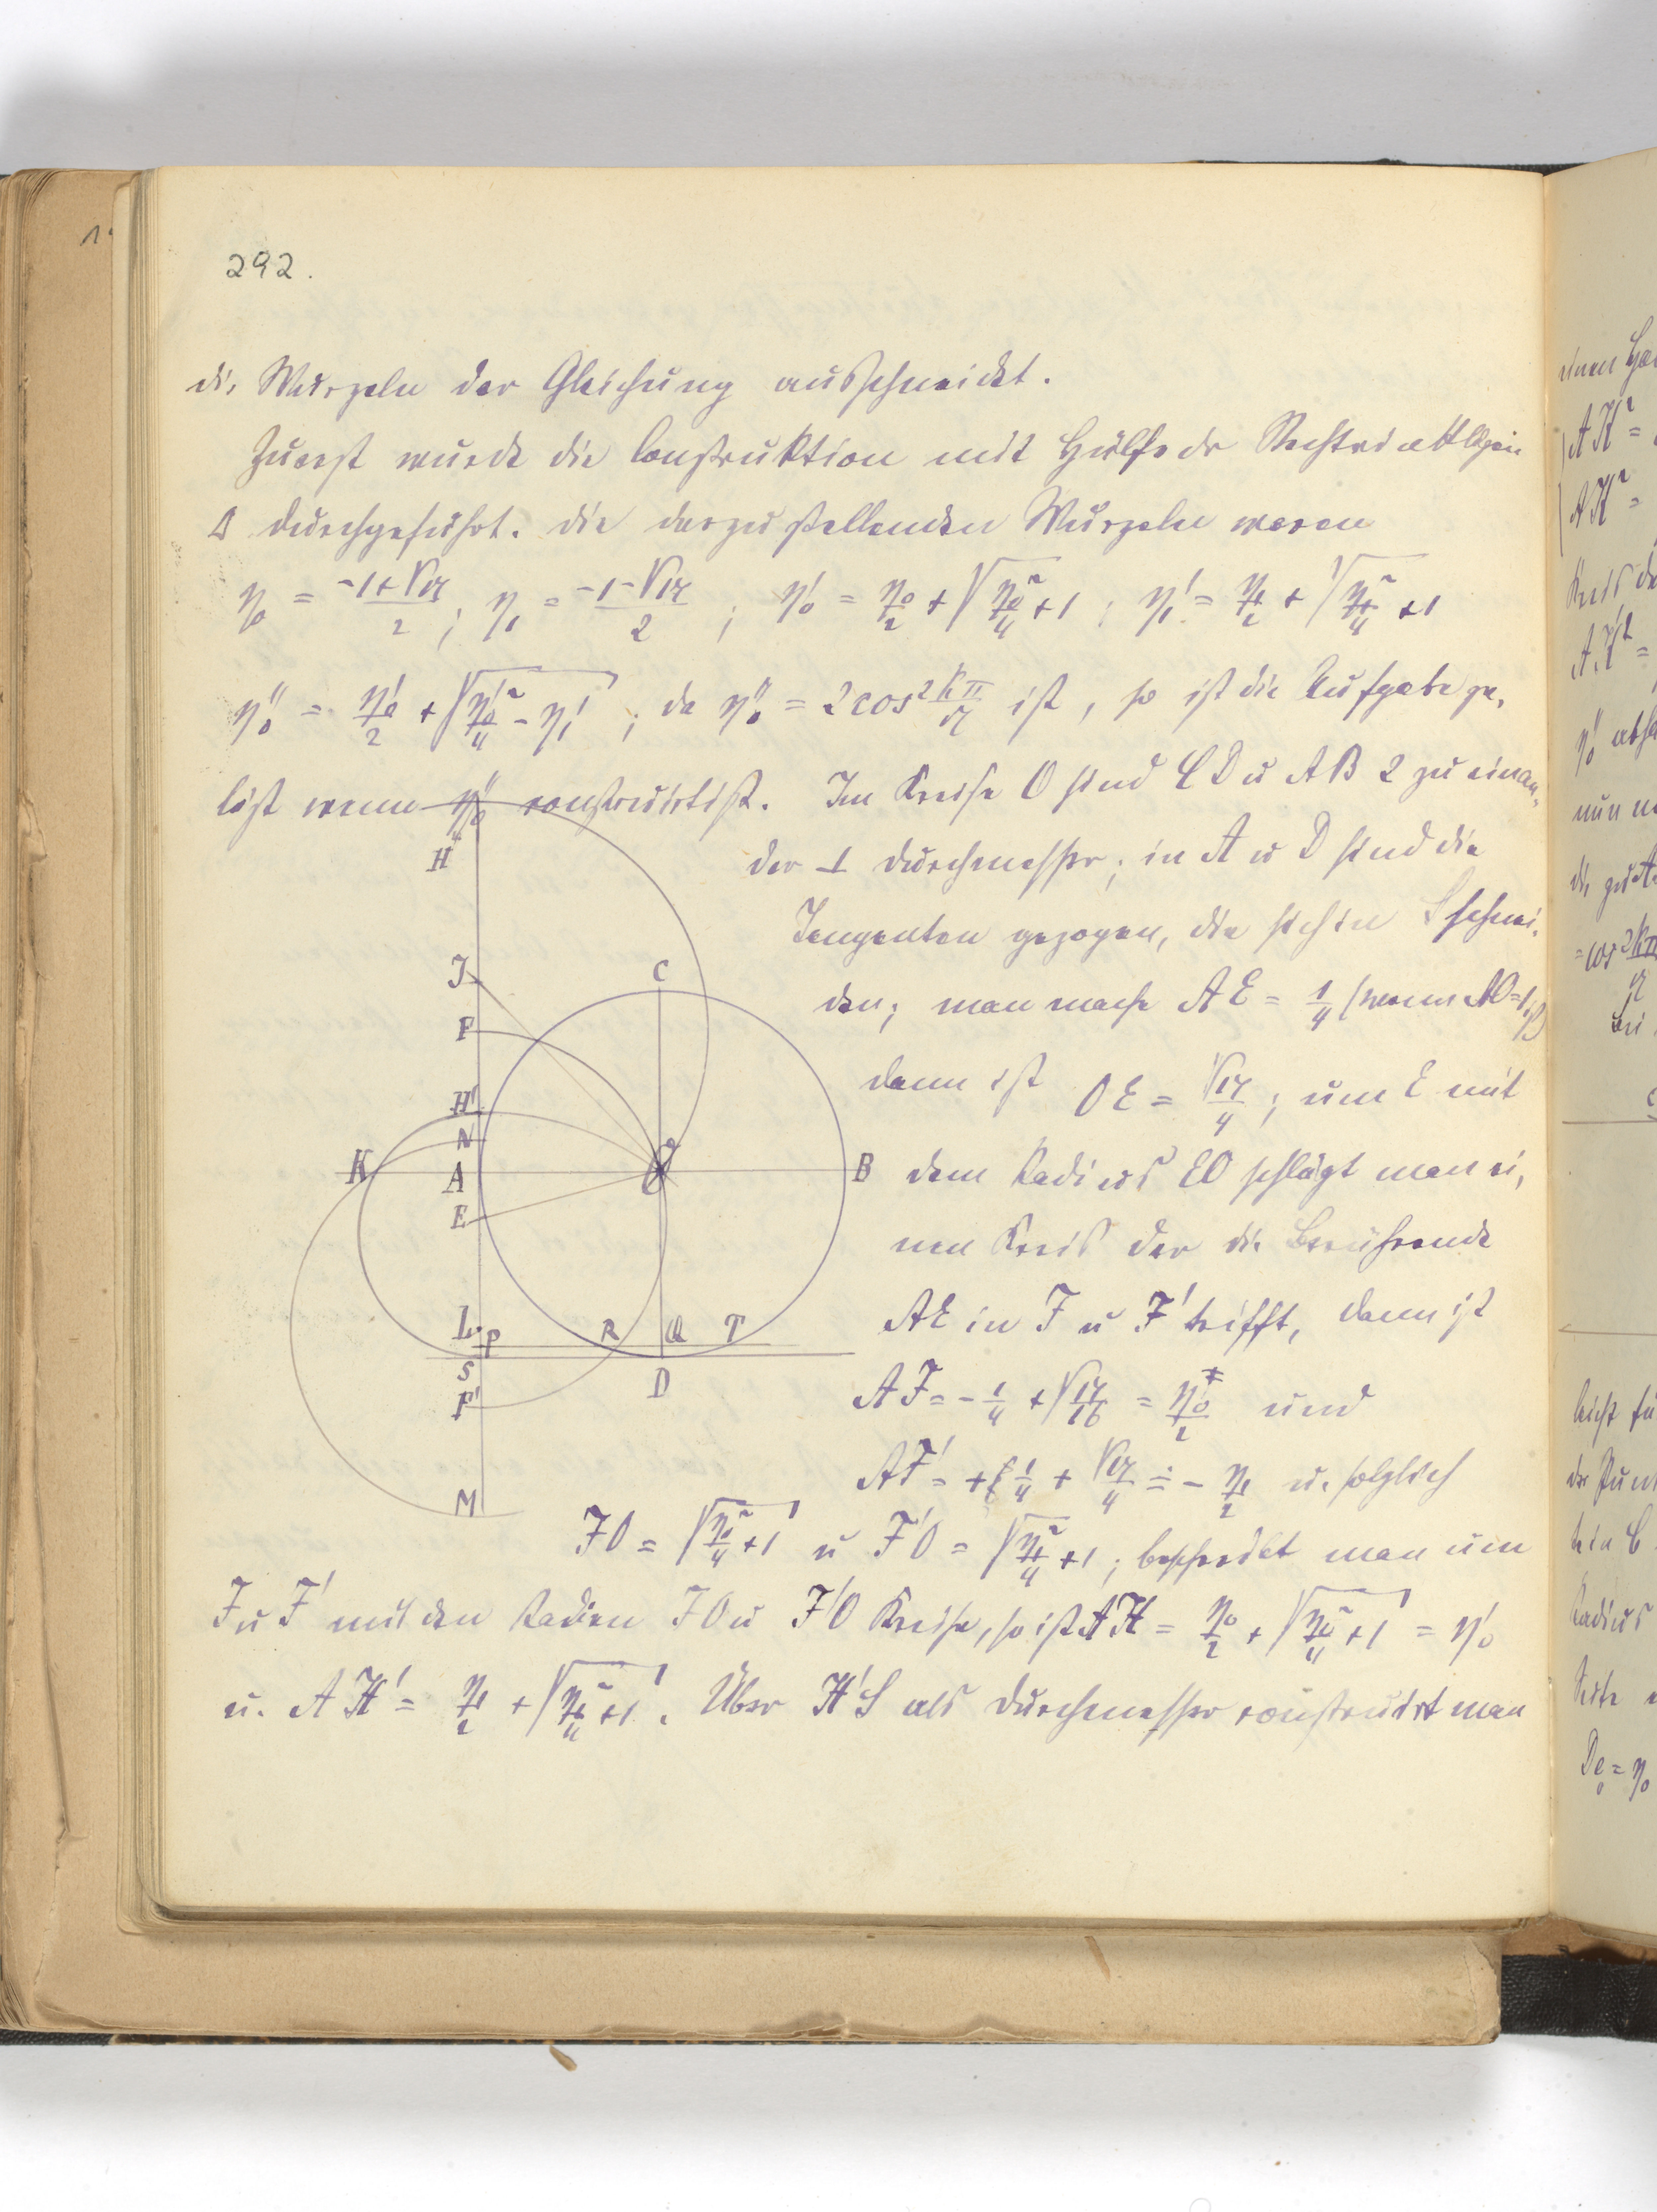 292.
die Wurzeln der Gleichung ausschneidet.
Zuerst wurde die Construktion mit Hülfe des
durchgeführt. Die darzustellenden Wurzeln waren
η₀ = (-1+√17)/2 ; η₁ = (-1-√17)/2 ; η₀' = η₀/2 + √(η₀²/4 + 1) ; η₁' = η₁/2 + √(η₁²/4 + 1)
η₀'' = η₀'/2 + √(η₀'²/4 - η₁') ; da η₀'' = 2cos 2kπ/17 ist, so ist die Aufgabe ge-
löst wenn η₀'' construirt ist. Im Kreise O sind CD u AB 2 zu einan-
der ⊥ Durchmesser; in A u D sind die
Tangenten gezogen, die sich in S schnei-
den; man mache AE = 1/4 (wenn AO=1 ist)
dann ist OE = √17/4 ; um E mit
dem Radius EO schlägt man ei-
nen Kreis der die Berührende
AE in F u F' trifft, dann ist
AF = -1/4 + √(17/16) = η₀/2 und
AF' = + 1/4 + √17/4 = - η₁/2 u. folglich
FO = √(η₀²/4 + 1) u F'O = √(η₁²/4 + 1) ; beschreibt man um
F u F' mit den Radien FO u F'O Kreise, so ist AH = η₀/2 + √(η₀²/4 + 1) = η₀'
u. AH' = η₁/2 + √(η₁²/4 + 1). Über H'S als Durchmesser construirt man
H
J
C
F
H'
N
K
A
O
B
E
L
P
R
Q
T
S
D
F'
M